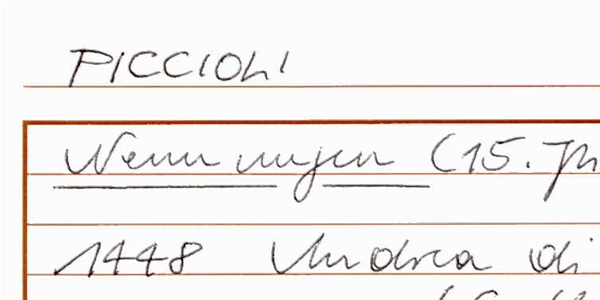 PICCIOLI
Nennungen (15. Jh
1448 Andrea di